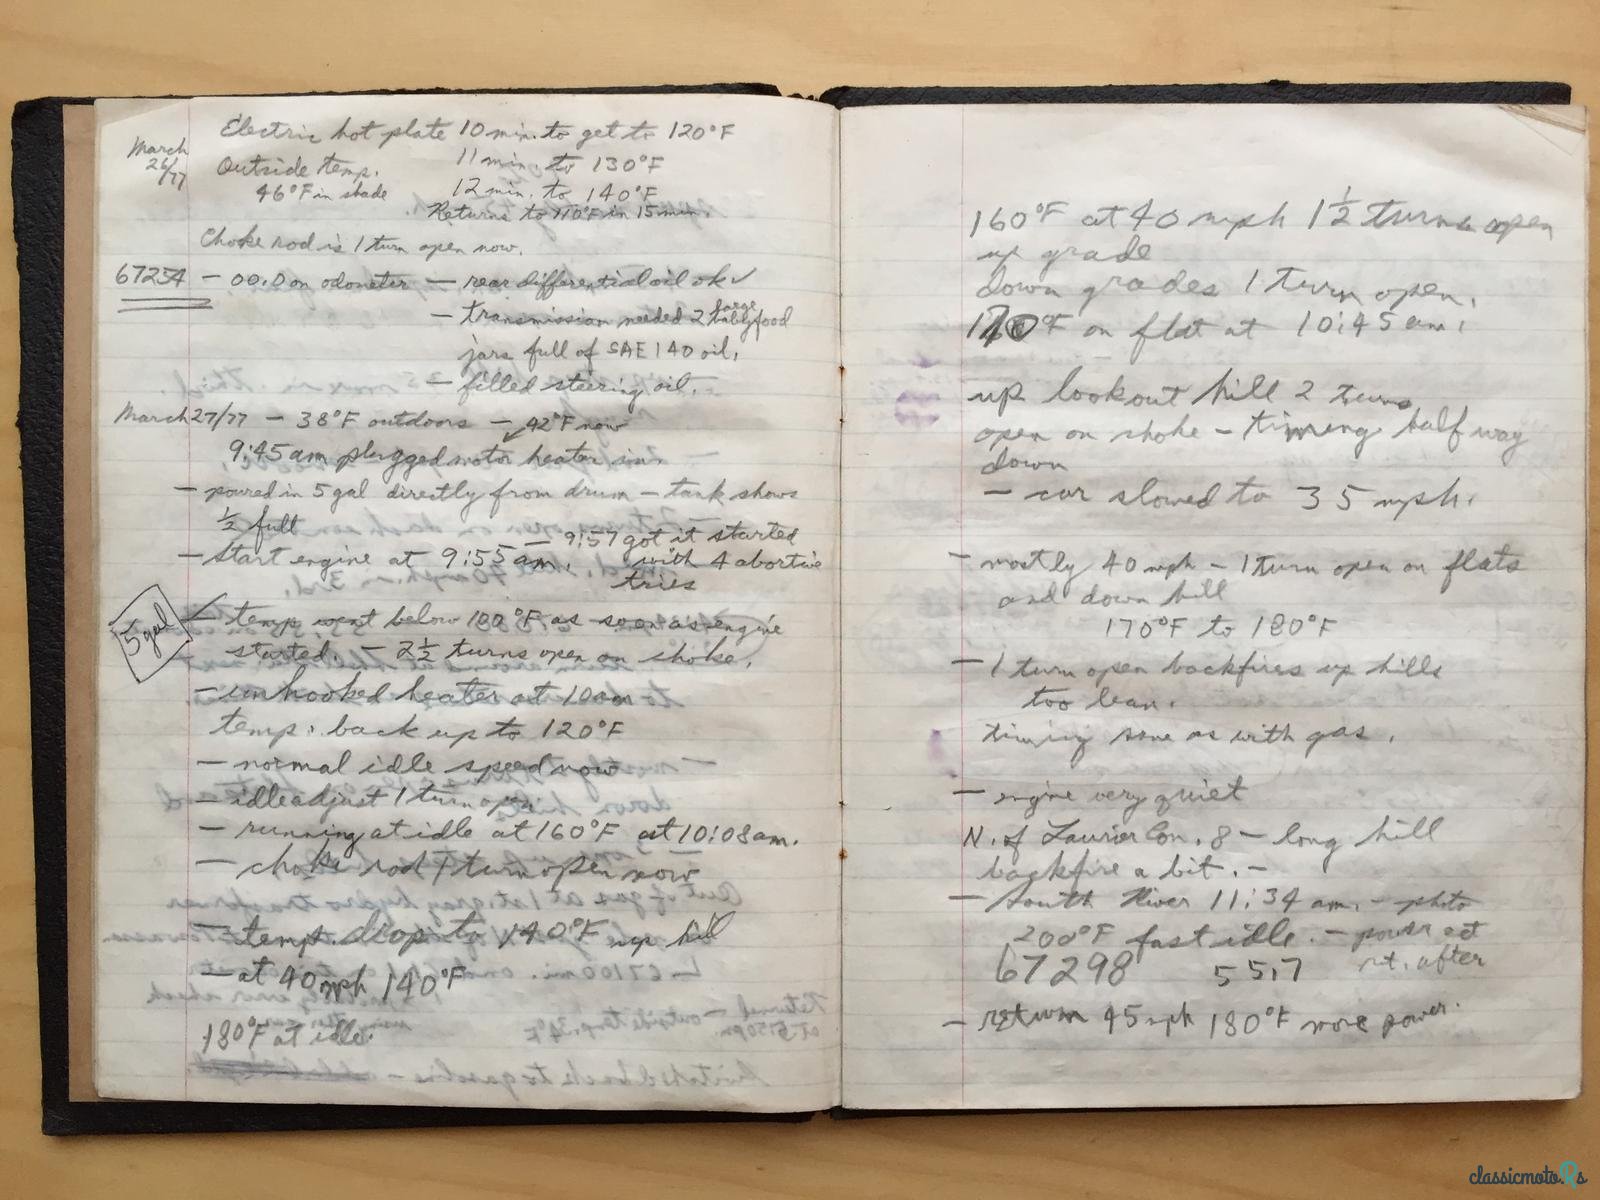 March
26/77
Electric hot plate 10 min. to get to 120°F
Outside temp. 11 min. to 130°F
46°F in shade 12 min. to 140°F
Returns to 110°F in 15 min.
Choke rod is 1 turn open now.
67254 - 00.0 on odometer - rear differential oil ok ✓
- transmission needed 2 large babyfood
jars full of SAE 140 oil.
- filled steering oil.
March 27/77 - 38°F outdoors - 42°F now
9:45 am plugged motor heater in.
- poured in 5 gal directly from drum - tank shows
½ full
- start engine at 9:55 am. - 9:57 got it started
with 4 abortive
tries
5 gal
- temp went below 100°F as soon as engine
started. - 2½ turns open on choke.
- unhooked heater at 10 am
temp. back up to 120°F
- normal idle speed now
- idle adjust 1 turn open
- running at idle at 160°F at 10:08 am.
- choke rod 1 turn open now
- temp. drop to 140°F up hill
- at 40 mph 140°F
180°F at idle.
160°F at 40 mph 1½ turns open
up grade
down grades 1 turn open.
170°F on flat at 10:45 am.
up lookout hill 2 turns
open on choke - timing half way
down
- car slowed to 35 mph.
- mostly 40 mph - 1 turn open on flats
and down hill
170°F to 180°F
- 1 turn open backfires up hills
too lean.
timing same as with gas.
- engine very quiet
N. of Laurier Con. 8 - long hill
backfire a bit. -
- South River 11:34 am. - photo
200°F fast idle. - power at
67298 55.7 rt. after
- return 45 mph 180°F more power.
classicmoto.Rs